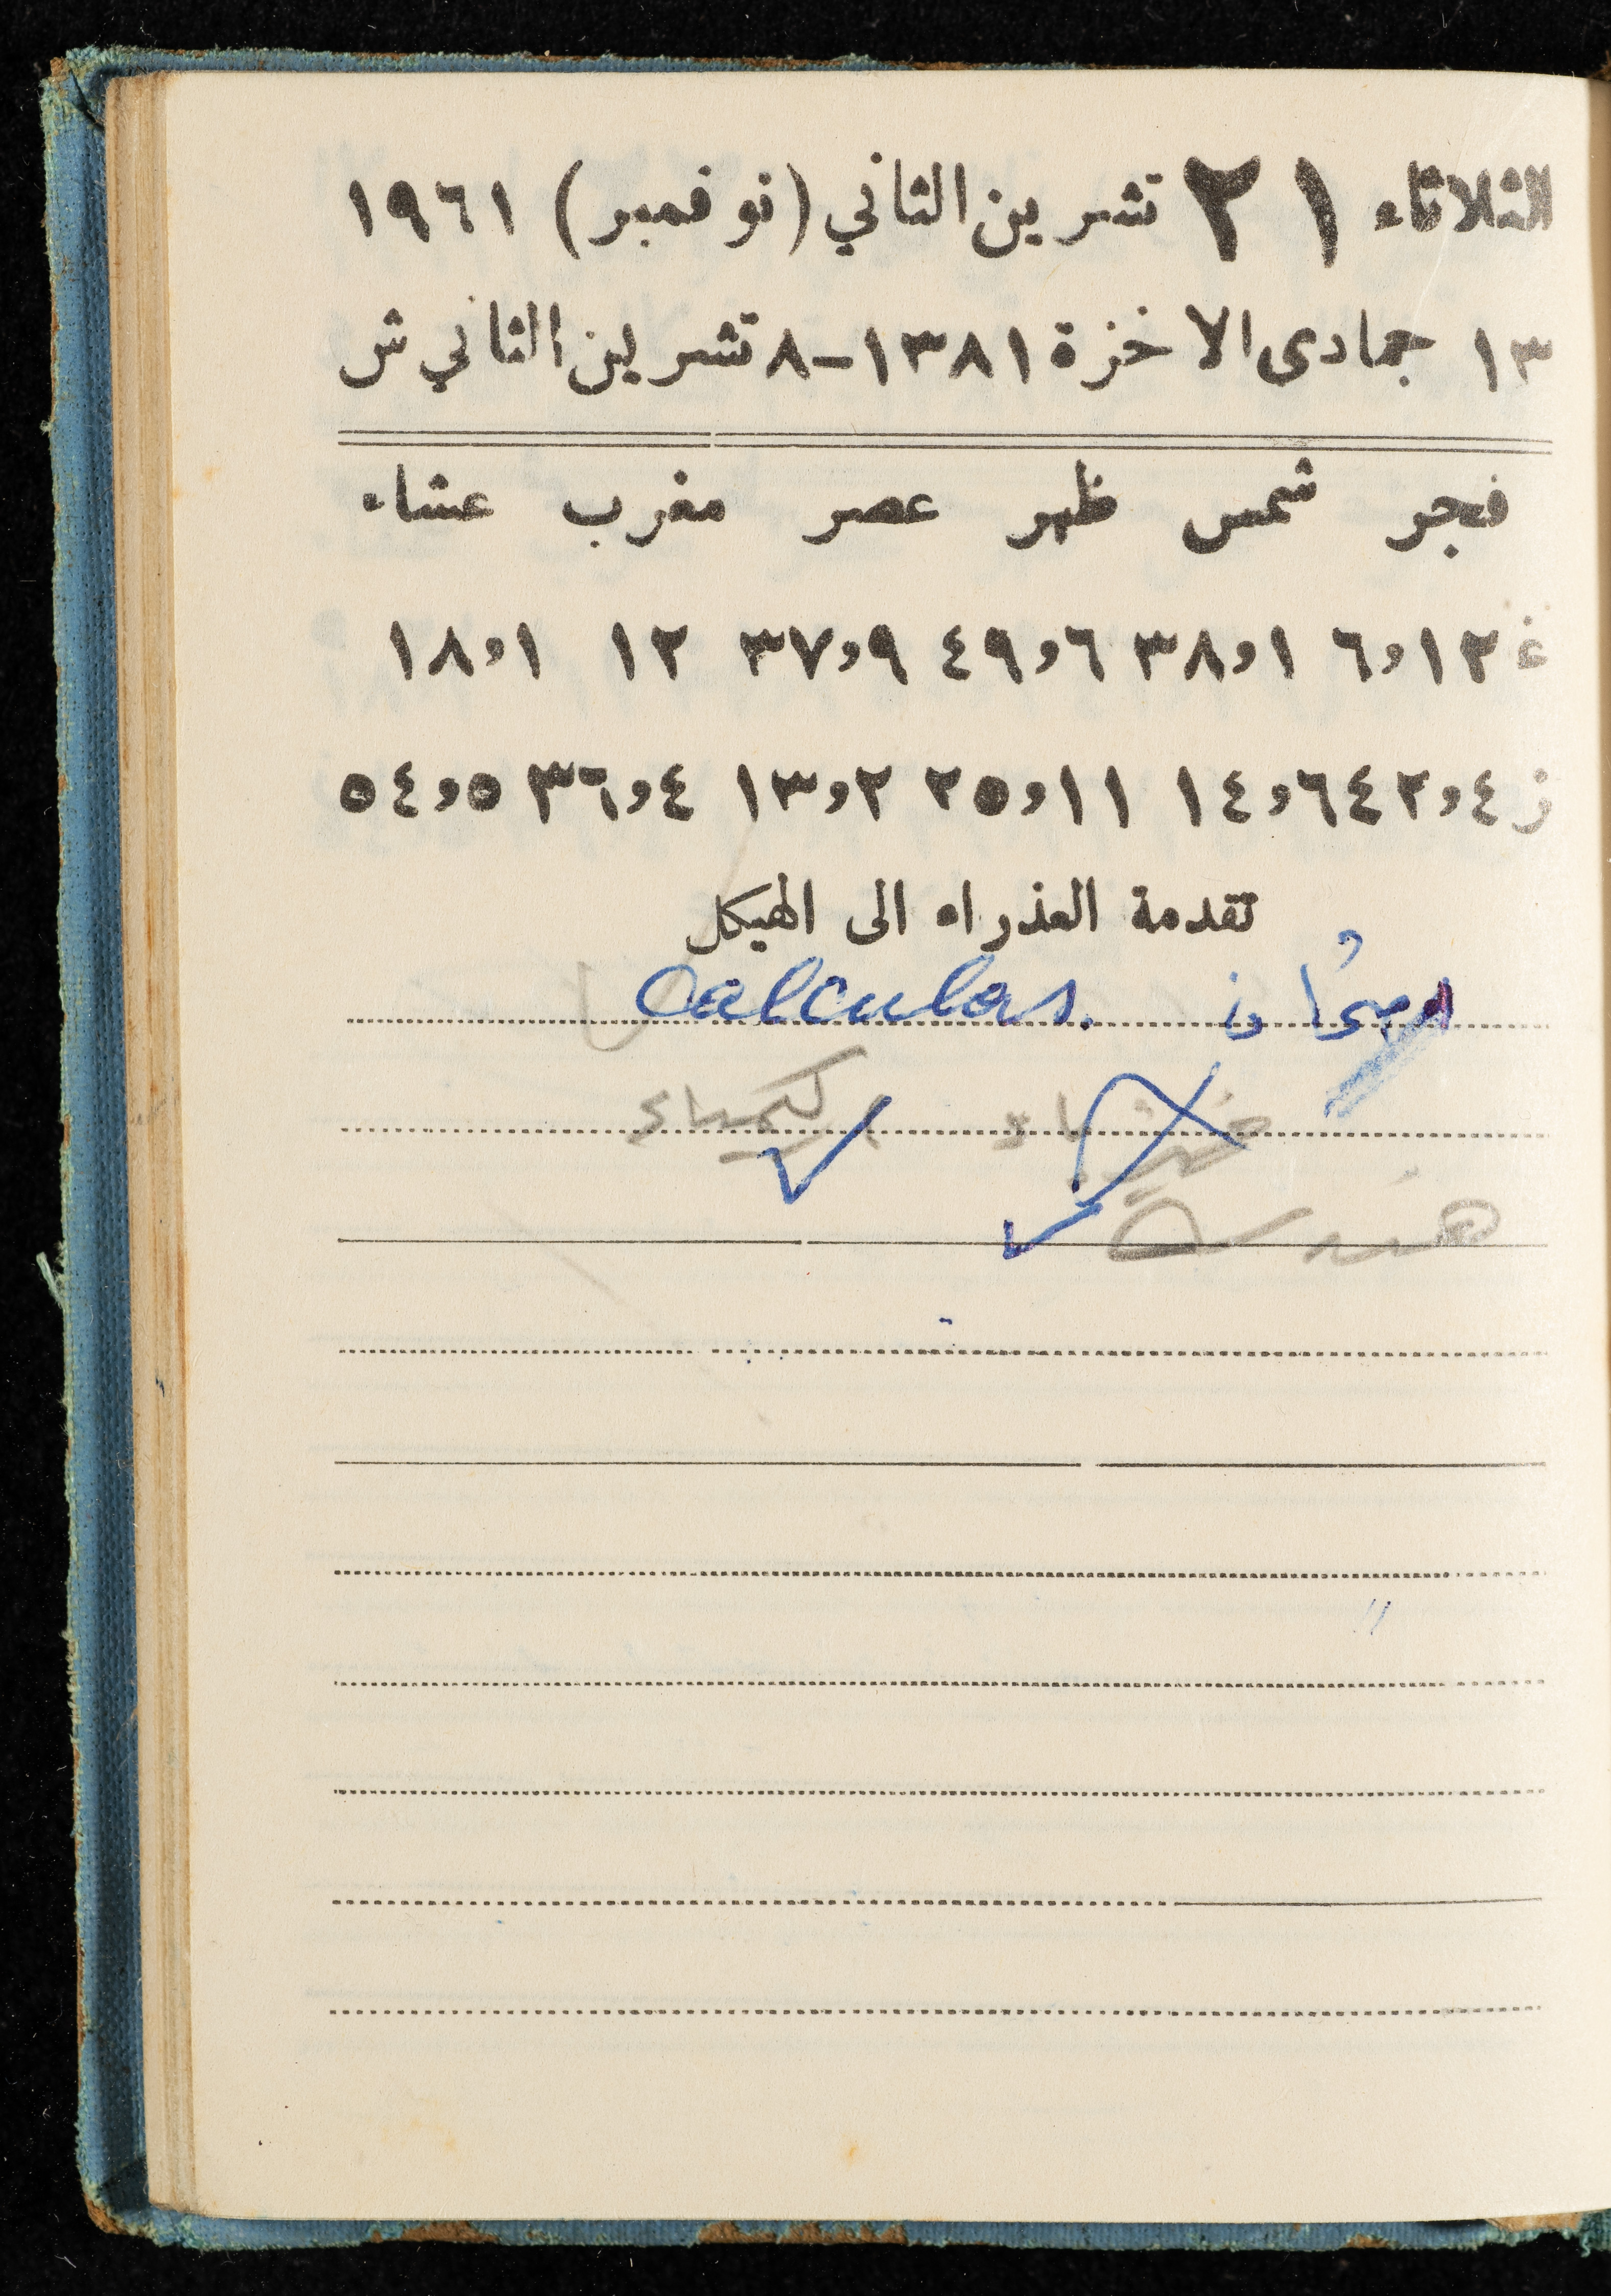 الثلاثاء ٢١ تشرين الثاني (نوفمبر) ١٩٦١
١٣ جمادى الاخرة ١٣٨١-٨ تشرين الثاني ش
فجر شمس ظهر عصر مغرب عشاء
غ ١٢,٦ ١,٣٨ ٦,٤٩ ٩,٣٧ ١٢ ١,١٨
ز ٤,٤٢ ٦,١٤ ١١,٢٥ ٢,١٣ ٤,٣٦ ٥,٥٤
تقدمة العذراء الى الهيكل
امتحان Calculas.
فيزياء، كيمياء
هندسة